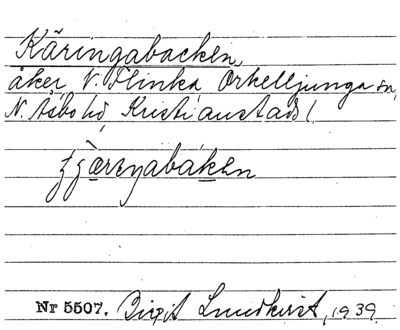 Käringabacken,
åker, V. Flinka, Örkelljunga sn,
N. Åsbo hd, Kristianstads l.
Nr 5507. Birgit Lundkvist, 1939.